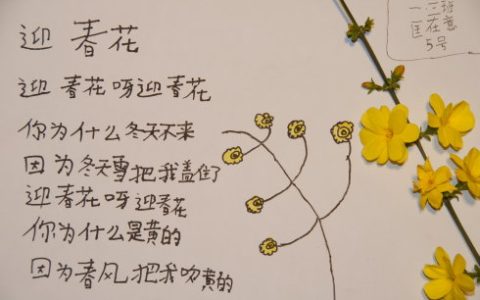 迎春花
迎春花呀迎春花
你为什么冬天不来
因为冬天雪把我盖住了
迎春花呀迎春花
你为什么是黄的
因为春风把我吹黄的
一二班
匡在意
5号